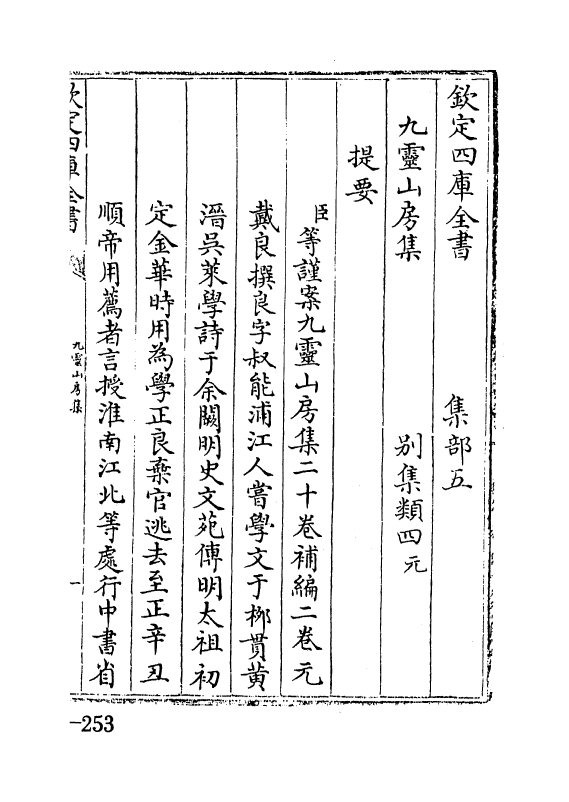 欽定四庫全書　集部五
九靈山房集　別集類四元
提要
臣等謹案九靈山房集二十卷補編二卷元
戴良撰良字叔能浦江人嘗學文于栁貫黄
溍吳萊學詩于余闕明史文苑傳明太祖初
定金華時用為學正良棄官逃去至正辛丑
順帝用薦者言授淮南江北等處行中書省
欽定四庫全書
九靈山房集
一
-253